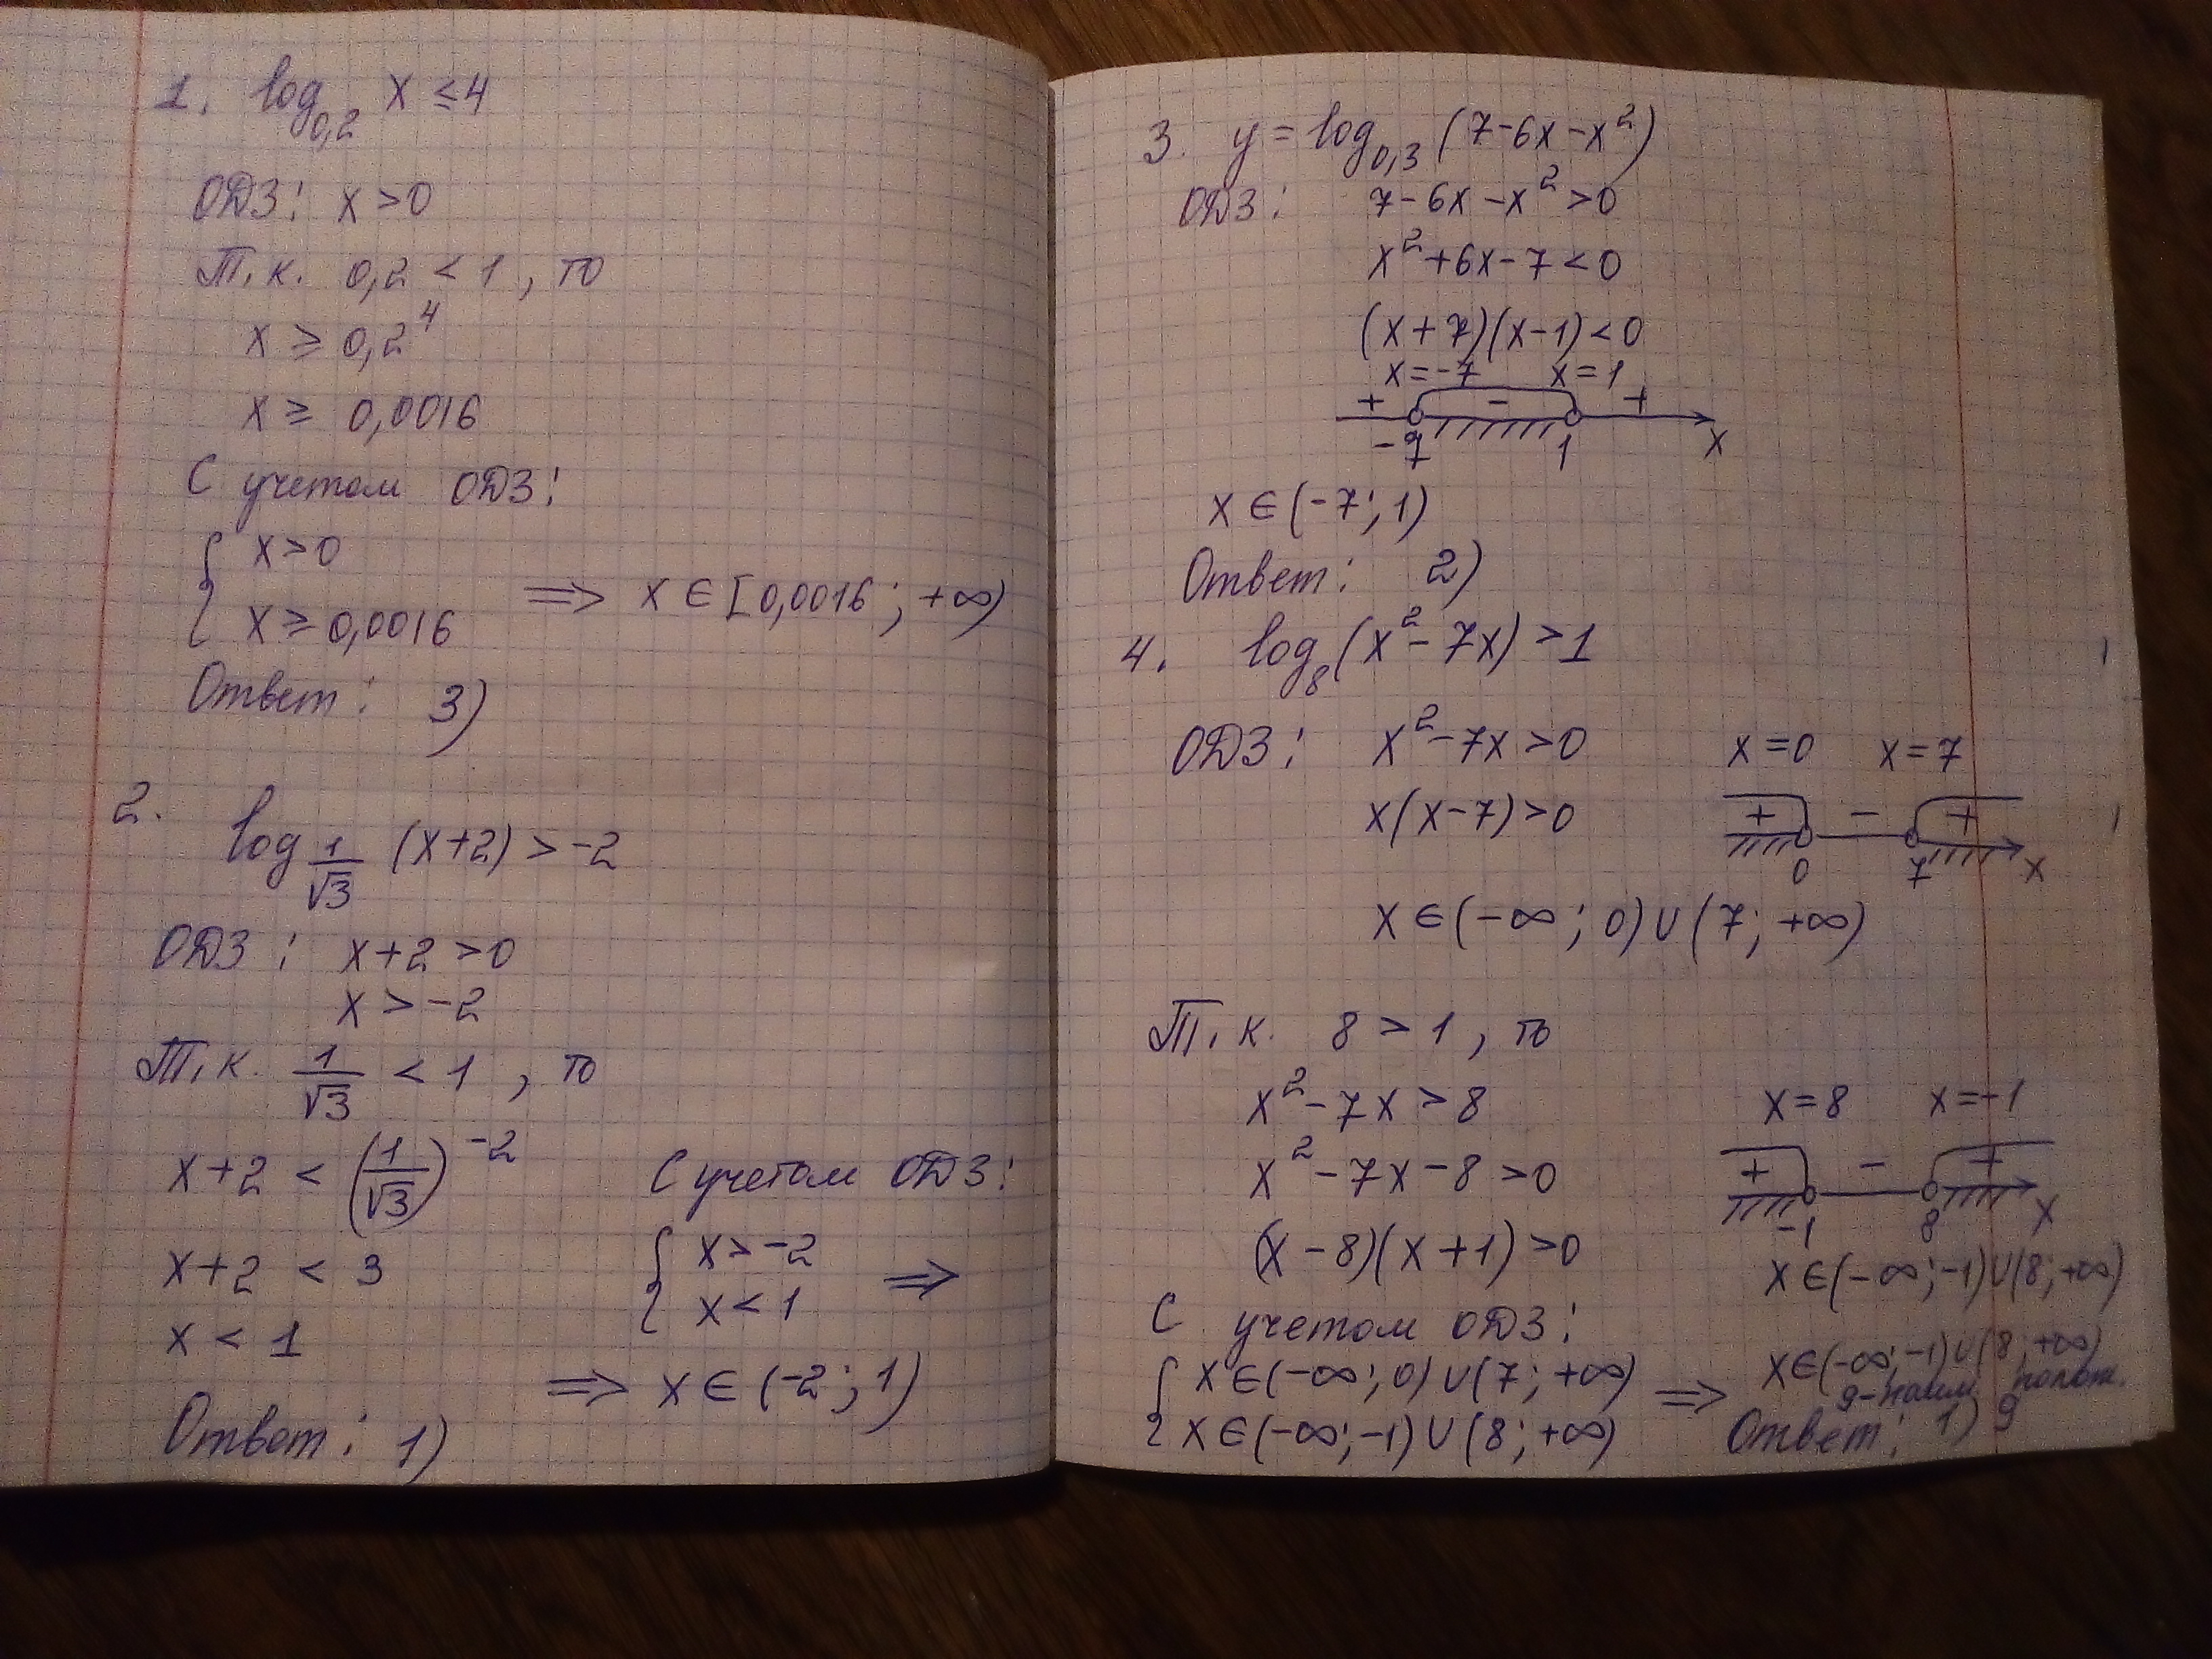 1. log₀,₂ x ≤ 4
ОДЗ: x > 0
Т.к. 0,2 < 1, то
x ≥ 0,2⁴
x ≥ 0,0016
С учетом ОДЗ:
{ x > 0
{ x ≥ 0,0016 ⟹ x ∈ [0,0016; +∞)
Ответ: 3)
2. log_{1/√3} (x+2) > -2
ОДЗ: x+2 > 0
x > -2
Т.к. 1/√3 < 1, то
x+2 < (1/√3)⁻²
x+2 < 3
x < 1
С учетом ОДЗ:
{ x > -2
{ x < 1 ⟹
⟹ x ∈ (-2; 1)
Ответ: 1)
3. y = log₀,₃ (7-6x-x²)
ОДЗ: 7-6x-x² > 0
x²+6x-7 < 0
(x+7)(x-1) < 0
x=-7 x=1
+ - +
-7 1 x
x ∈ (-7; 1)
Ответ: 2)
4. log₈ (x²-7x) > 1
ОДЗ: x²-7x > 0
x(x-7) > 0
x=0 x=7
+ - +
0 7 x
x ∈ (-∞; 0) ∪ (7; +∞)
Т.к. 8 > 1, то
x²-7x > 8
x²-7x-8 > 0
(x-8)(x+1) > 0
x=8 x=-1
+ - +
-1 8 x
x ∈ (-∞; -1) ∪ (8; +∞)
С учетом ОДЗ:
{ x ∈ (-∞; 0) ∪ (7; +∞)
{ x ∈ (-∞; -1) ∪ (8; +∞) ⟹
x ∈ (-∞; -1) ∪ (8; +∞)
9-наим. полож.
Ответ: 1) 9